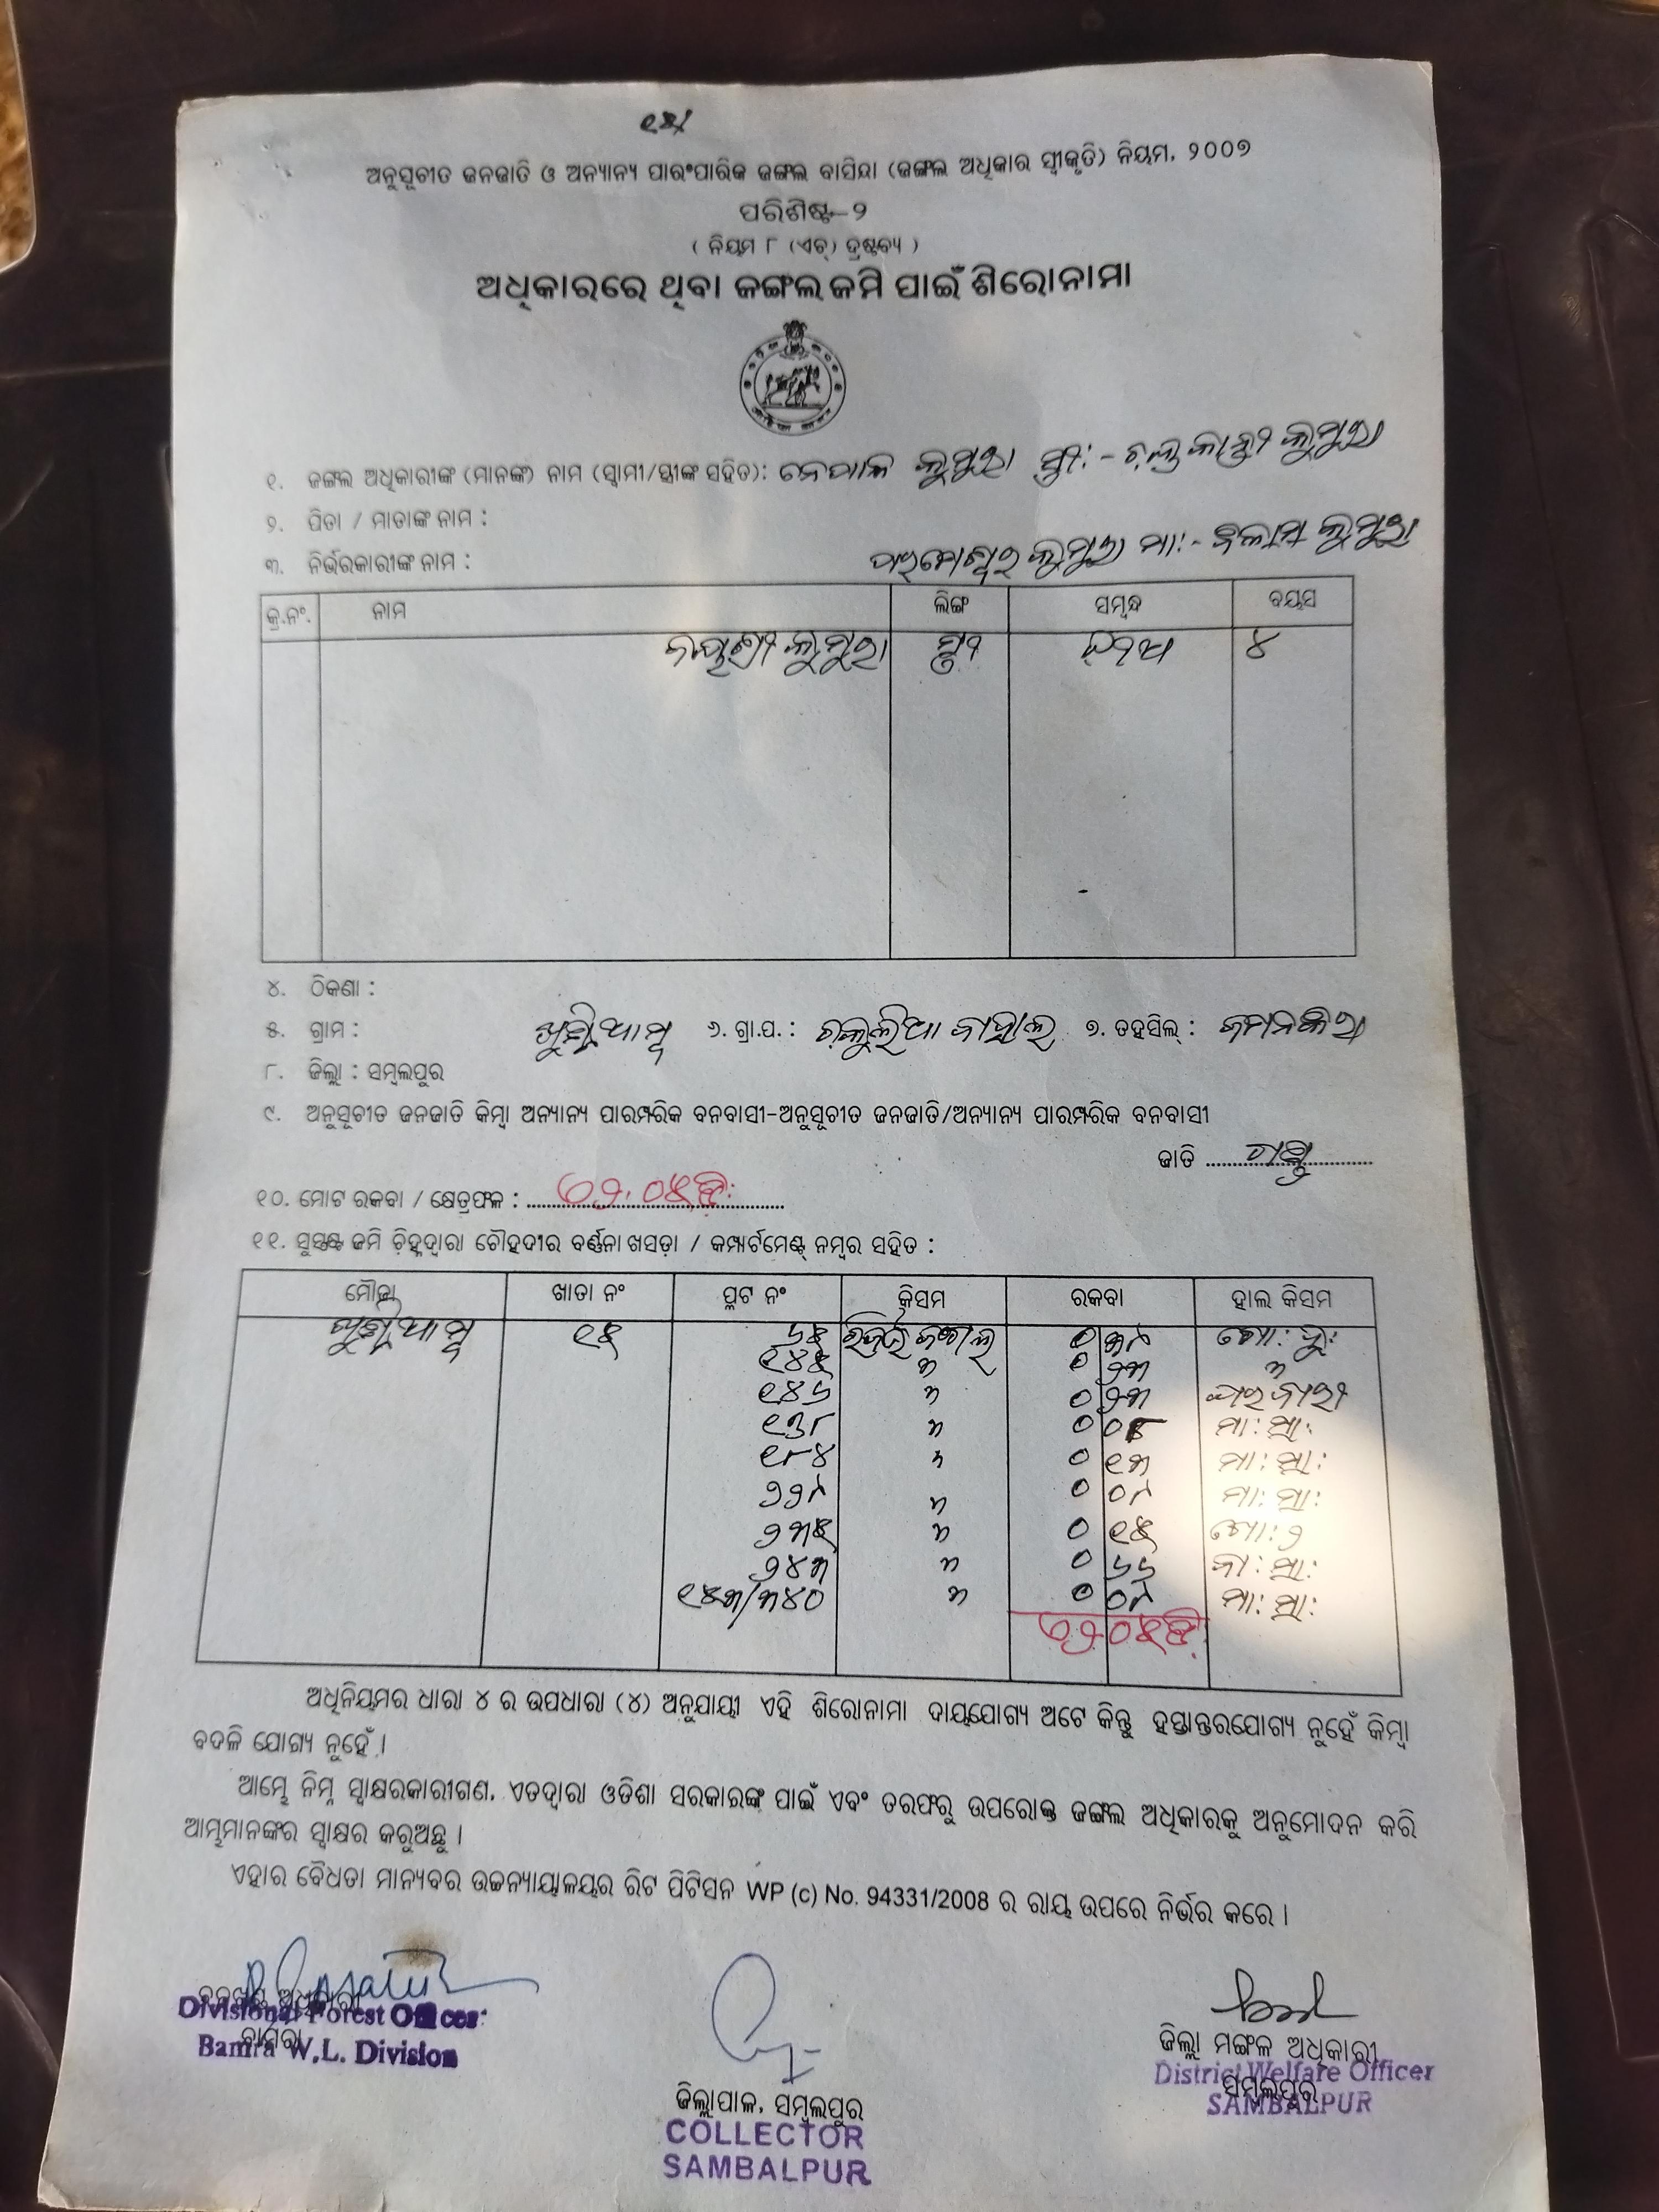 ୧୫/
ଅନୁସୂଚୀତ ଜନଜାତି ଓ ଅନ୍ୟାନ୍ୟ ପାରଂପାରିକ ଜଙ୍ଗଲ ବାସିନ୍ଦା (ଜଙ୍ଗଲ ଅଧିକାର ସ୍ୱୀକୃତି) ନିୟମ, ୨୦୦୭
ପରିଶିଷ୍ଟ-୨
( ନିୟମ ୮ (ଏଚ୍) ଦ୍ରଷ୍ଟବ୍ୟ )
ଅଧିକାରରେ ଥିବା ଜଙ୍ଗଲ ଜମି ପାଇଁ ଶିରୋନାମା
୧. ଜଙ୍ଗଲ ଅଧିକାରୀଙ୍କ (ମାନଙ୍କ) ନାମ (ସ୍ୱାମୀ/ସ୍ତ୍ରୀଙ୍କ ସହିତ): ନେପାଳ କୁମୁରା ସ୍ତ୍ରୀ:- କୁମୁରା
୨. ପିତା / ମାତାଙ୍କ ନାମ :
୩. ନିର୍ଭରକାରୀଙ୍କ ନାମ : କୁମୁରା ମା:- କୁମୁରା
କ୍ର.ନଂ. ନାମ ଲିଙ୍ଗ ସମ୍ବନ୍ଧ ବୟସ
କୁମୁରା ସ୍ତ୍ରୀ ଝିଅ ୪
୪. ଠିକଣା :
୫. ଗ୍ରାମ : ୬. ଗ୍ରା.ପ. : ୭. ତହସିଲ୍ : ଜମନକିରା
୮. ଜିଲ୍ଲା : ସମ୍ବଲପୁର
୯. ଅନୁସୂଚୀତ ଜନଜାତି କିମ୍ବା ଅନ୍ୟାନ୍ୟ ପାରମ୍ପରିକ ବନବାସୀ-ଅନୁସୂଚୀତ ଜନଜାତି/ଅନ୍ୟାନ୍ୟ ପାରମ୍ପରିକ ବନବାସୀ
ଜାତି
୧୦. ମୋଟ ରକବା / କ୍ଷେତ୍ରଫଳ : ଏ୨.୦୫ଡି:
୧୧. ସୁସ୍ପଷ୍ଟ ଜମି ଚିହ୍ନଦ୍ୱାରା ଚୌହଦୀର ବର୍ଣ୍ଣନା ଖସଡ଼ା / କମ୍ପାର୍ଟମେଣ୍ଟ୍ ନମ୍ବର ସହିତ :
ମୌଜା ଖାତା ନଂ ପ୍ଲଟ ନଂ କିସମ ରକବା ହାଲ କିସମ
୧୫ ୬୫ ଜଙ୍ଗଲ ୦ ୩୯
୧୪୫ " ୦ ୨୩ "
୧୪୬ " ୦ ୨୩ ଘରବାରୀ
୧୬୮ " ୦ ୦୮ ମା:ସା:
୧୮୪ " ୦ ୧୩ ମା:ସା:
୨୨୯ " ୦ ୦୯ ମା:ସା:
୨୩୫ " ୦ ୧୫
୨୪୩ " ୦ ୬୬
୧୫୩/୩୪୦ " ୦ ୦୯ ମା:ସା:
ଏ୨ ୦୫ଡି:
ଅଧିନିୟମର ଧାରା ୪ ର ଉପଧାରା (୪) ଅନୁଯାୟୀ ଏହି ଶିରୋନାମା ଦାୟଯୋଗ୍ୟ ଅଟେ କିନ୍ତୁ ହସ୍ତାନ୍ତରଯୋଗ୍ୟ ନୁହେଁ କିମ୍ବା
ବଦଳି ଯୋଗ୍ୟ ନୁହେଁ ।
ଆମ୍ଭେ ନିମ୍ନ ସ୍ୱାକ୍ଷରକାରୀଗଣ, ଏତଦ୍ୱାରା ଓଡିଶା ସରକାରଙ୍କ ପାଇଁ ଏବଂ ତରଫରୁ ଉପରୋକ୍ତ ଜଙ୍ଗଲ ଅଧିକାରକୁ ଅନୁମୋଦନ କରି
ଆମ୍ଭମାନଙ୍କର ସ୍ୱାକ୍ଷର କରୁଅଛୁ ।
ଏହାର ବୈଧତା ମାନ୍ୟବର ଉଚ୍ଚନ୍ୟାୟାଳୟର ରିଟ ପିଟିସନ WP (c) No. 94331/2008 ର ରାୟ ଉପରେ ନିର୍ଭର କରେ ।
ବନଖଣ୍ଡ ଅଧିକାରୀ
Divisional Forest Officer
ବାମରା
Bamra W.L. Division
ଜିଲ୍ଲାପାଳ, ସମ୍ବଲପୁର
COLLECTOR
SAMBALPUR
ଜିଲ୍ଲା ମଙ୍ଗଳ ଅଧିକାରୀ
District Welfare Officer
ସମ୍ବଲପୁର
SAMBALPUR